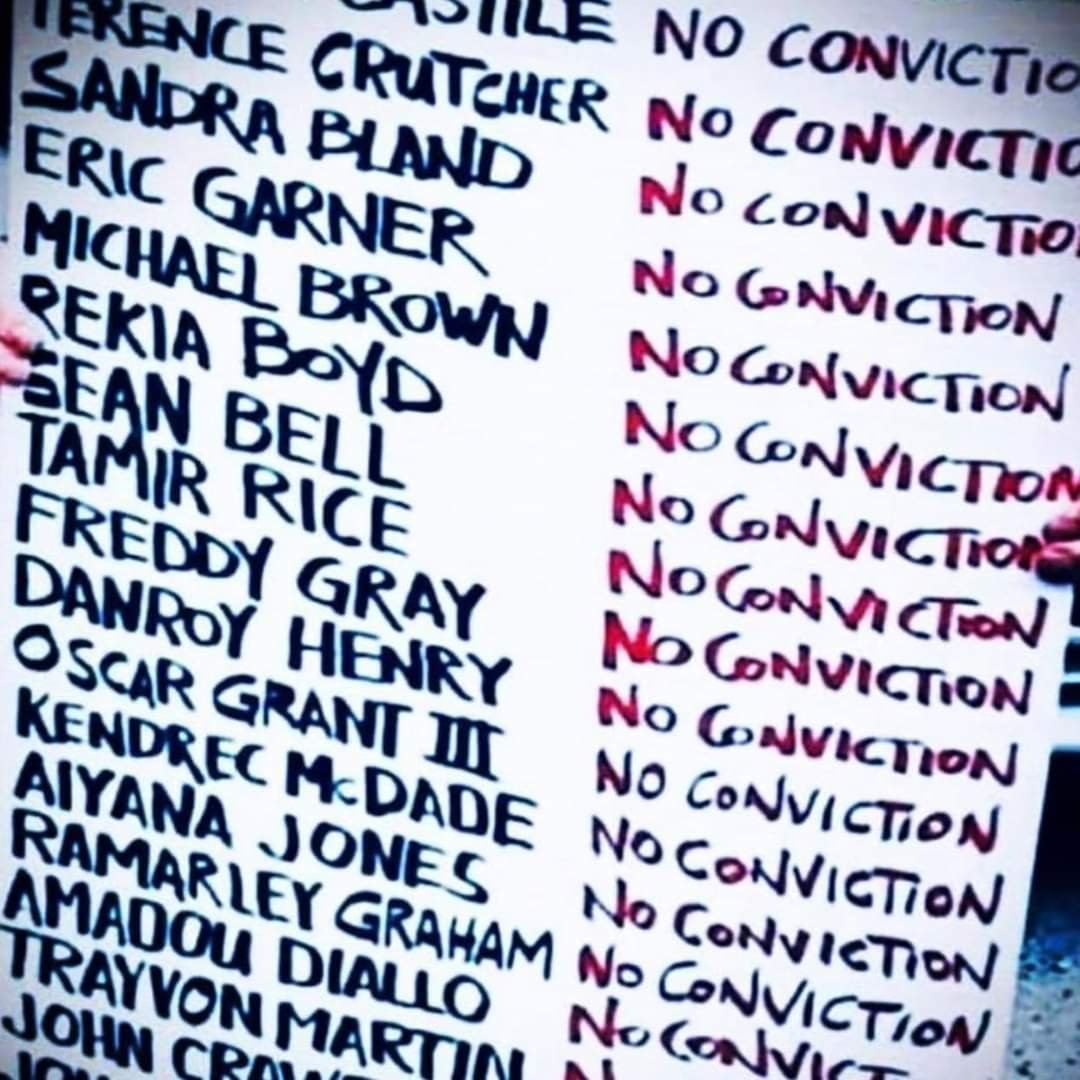 CASTILE NO CONVICTIO
TERENCE CRUTCHER NO CONVICTIO
SANDRA BLAND NO CONVICTIO
ERIC GARNER NO CONVICTION
MICHAEL BROWN NO CONVICTION
REKIA BOYD NO CONVICTION
SEAN BELL NO CONVICTION
TAMIR RICE NO CONVICTION
FREDDY GRAY NO CONVICTION
DANROY HENRY NO CONVICTION
OSCAR GRANT III NO CONVICTION
KENDREC McDADE NO CONVICTION
AIYANA JONES NO CONVICTION
RAMARLEY GRAHAM NO CONVICTION
AMADOU DIALLO NO CONVICT
TRAYVON MARTIN
JOHN CRAW